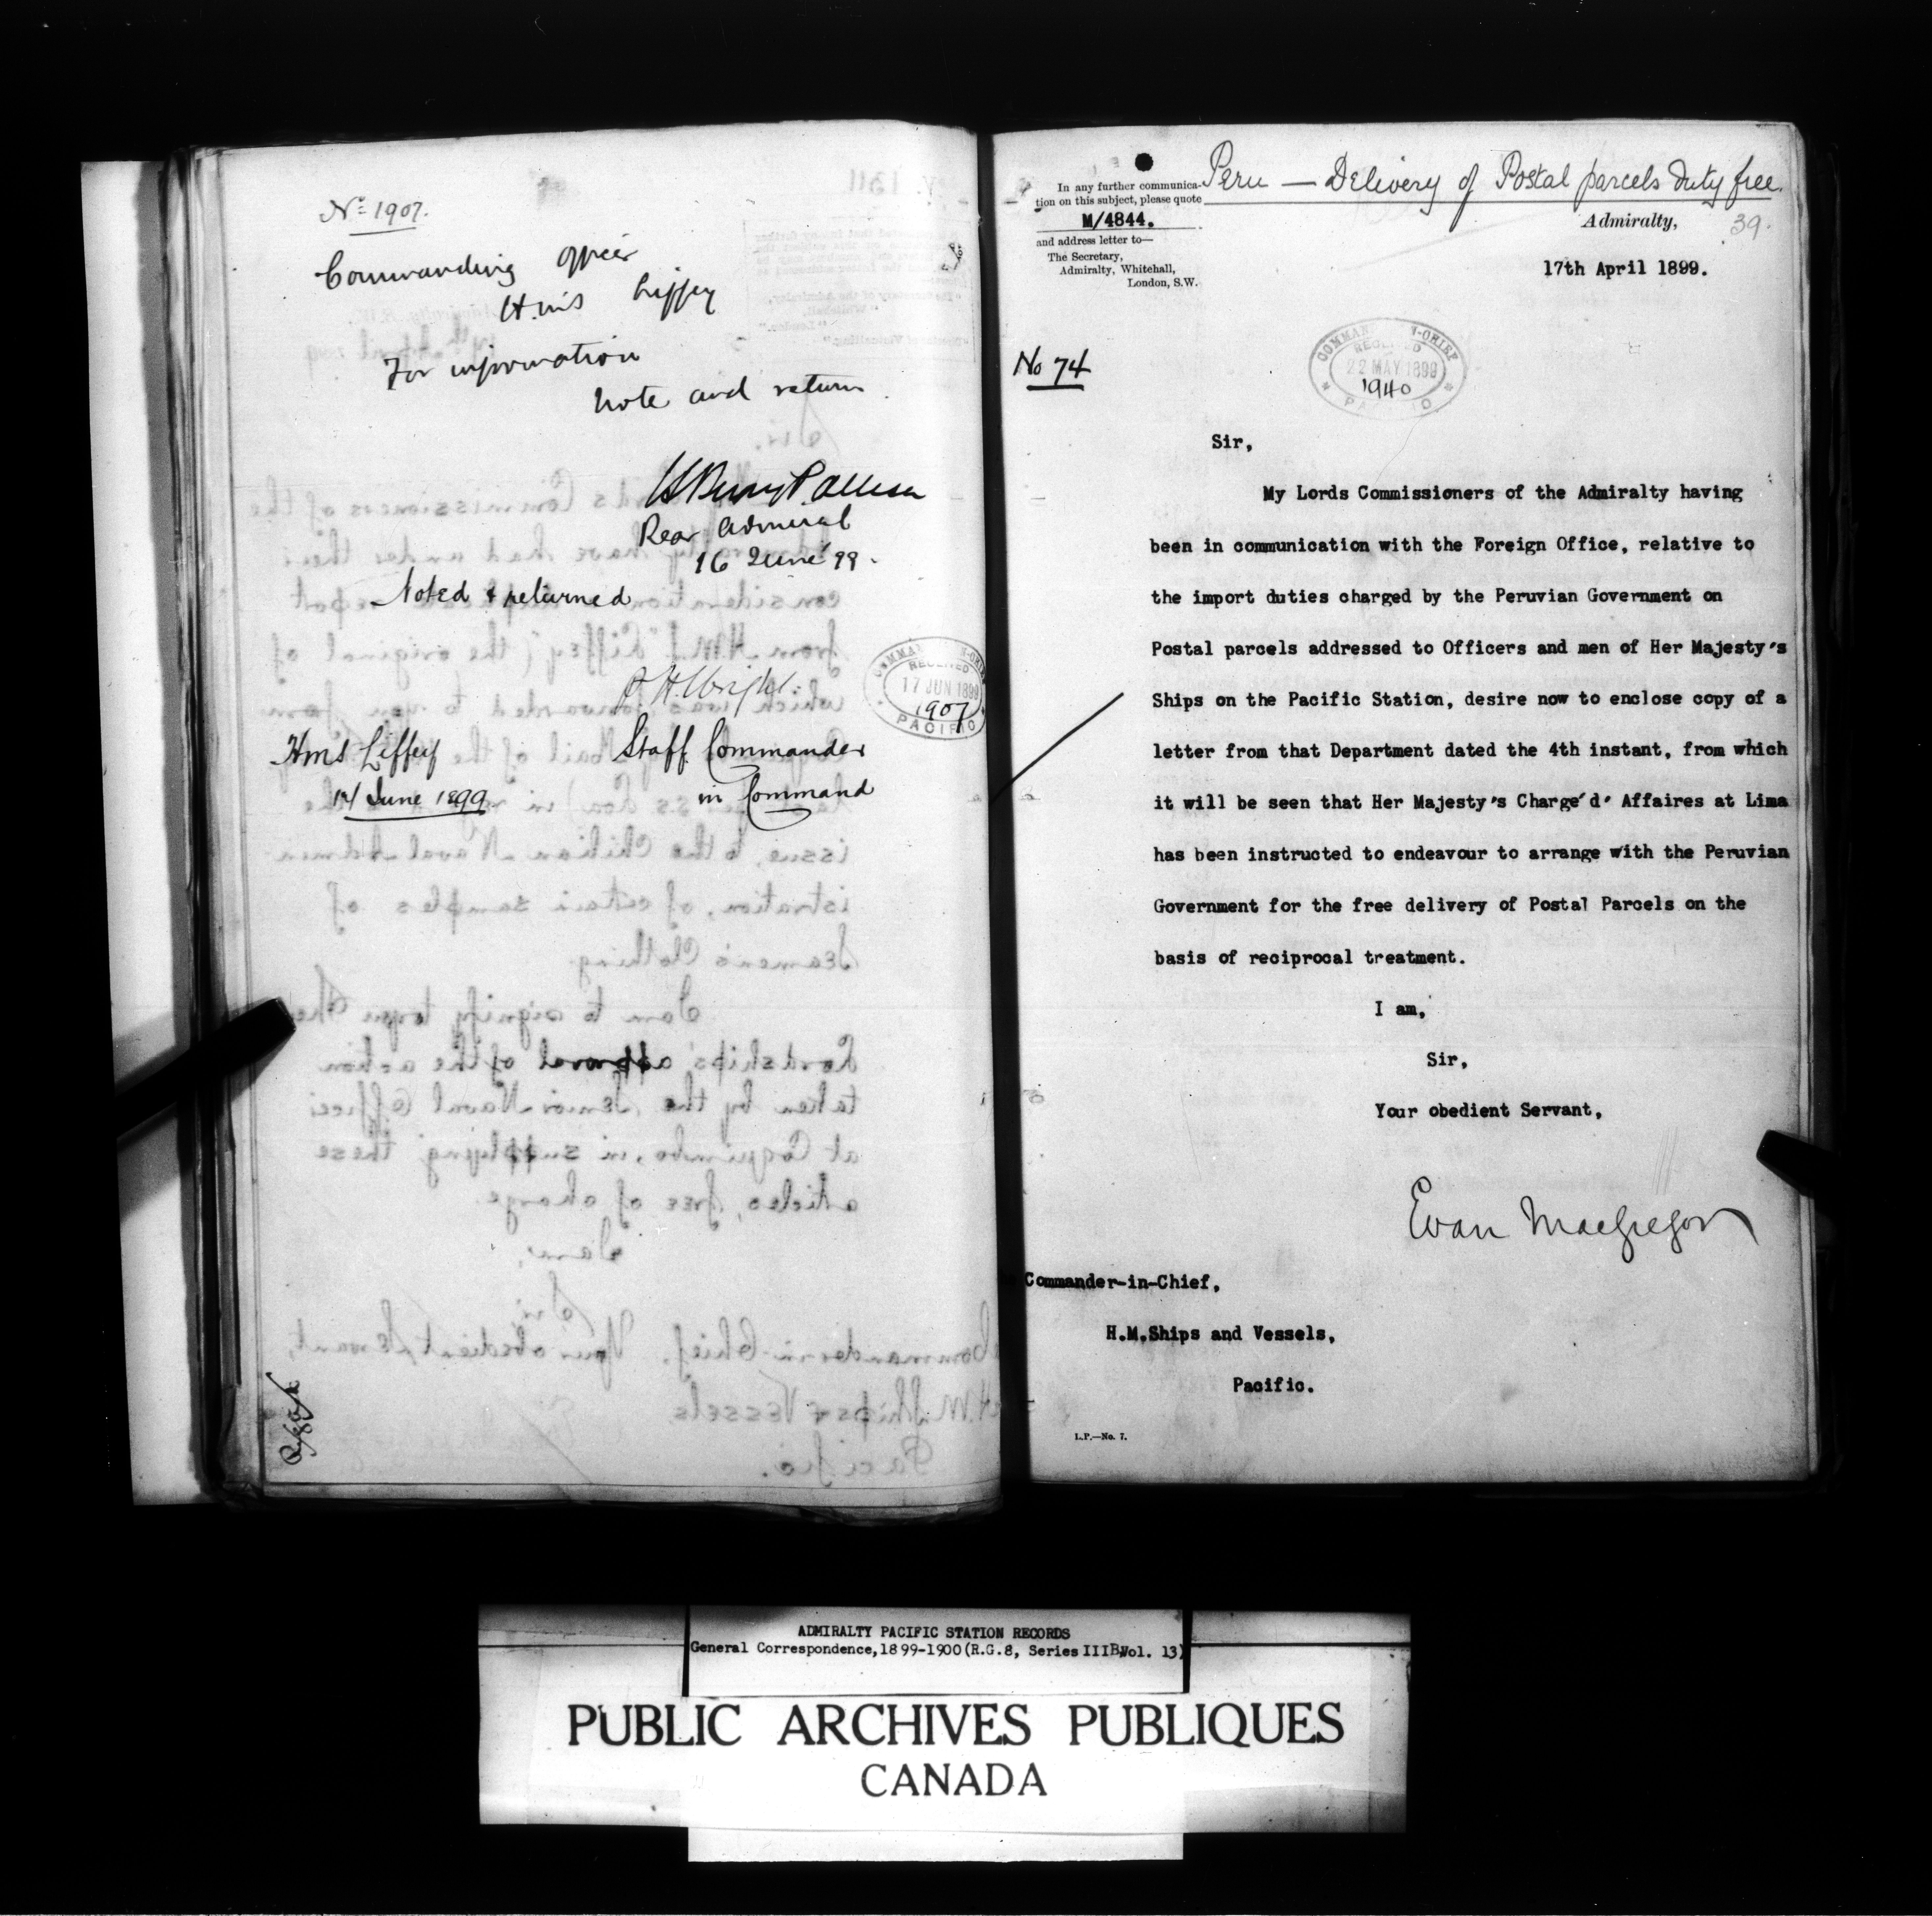 No 1907.
Commanding Officer
H.M.S Liffey
For information
Note and return
H Bury Palliser
Rear Admiral
16 June 99.
Noted & returned
Wright
Staff Commander
in Command
HMS Liffey
14 June 1899.
RECEIVED
17 JUN 1899
1907
PACIFIC
Peru — Delivery of Postal parcels duty free.
In any further communica-
tion on this subject, please quote
M/4844.
and address letter to—
The Secretary,
Admiralty, Whitehall,
London, S.W.
Admiralty,
39.
17th April 1899.
No 74
RECEIVED
22 MAY 1899
1940
Sir,
My Lords Commissioners of the Admiralty having
been in communication with the Foreign Office, relative to
the import duties charged by the Peruvian Government on
Postal parcels addressed to Officers and men of Her Majesty's
Ships on the Pacific Station, desire now to enclose copy of a
letter from that Department dated the 4th instant, from which
it will be seen that Her Majesty's Charge'd' Affaires at Lima
has been instructed to endeavour to arrange with the Peruvian
Government for the free delivery of Postal Parcels on the
basis of reciprocal treatment.
I am,
Sir,
Your obedient Servant,
Evan MacGregor
Commander-in-Chief,
H.M.Ships and Vessels,
Pacific.
L.P.—No. 7.
ADMIRALTY PACIFIC STATION RECORDS
General Correspondence,1899-1900(R.G.8, Series IIIB,Vol. 13)
PUBLIC ARCHIVES PUBLIQUES
CANADA